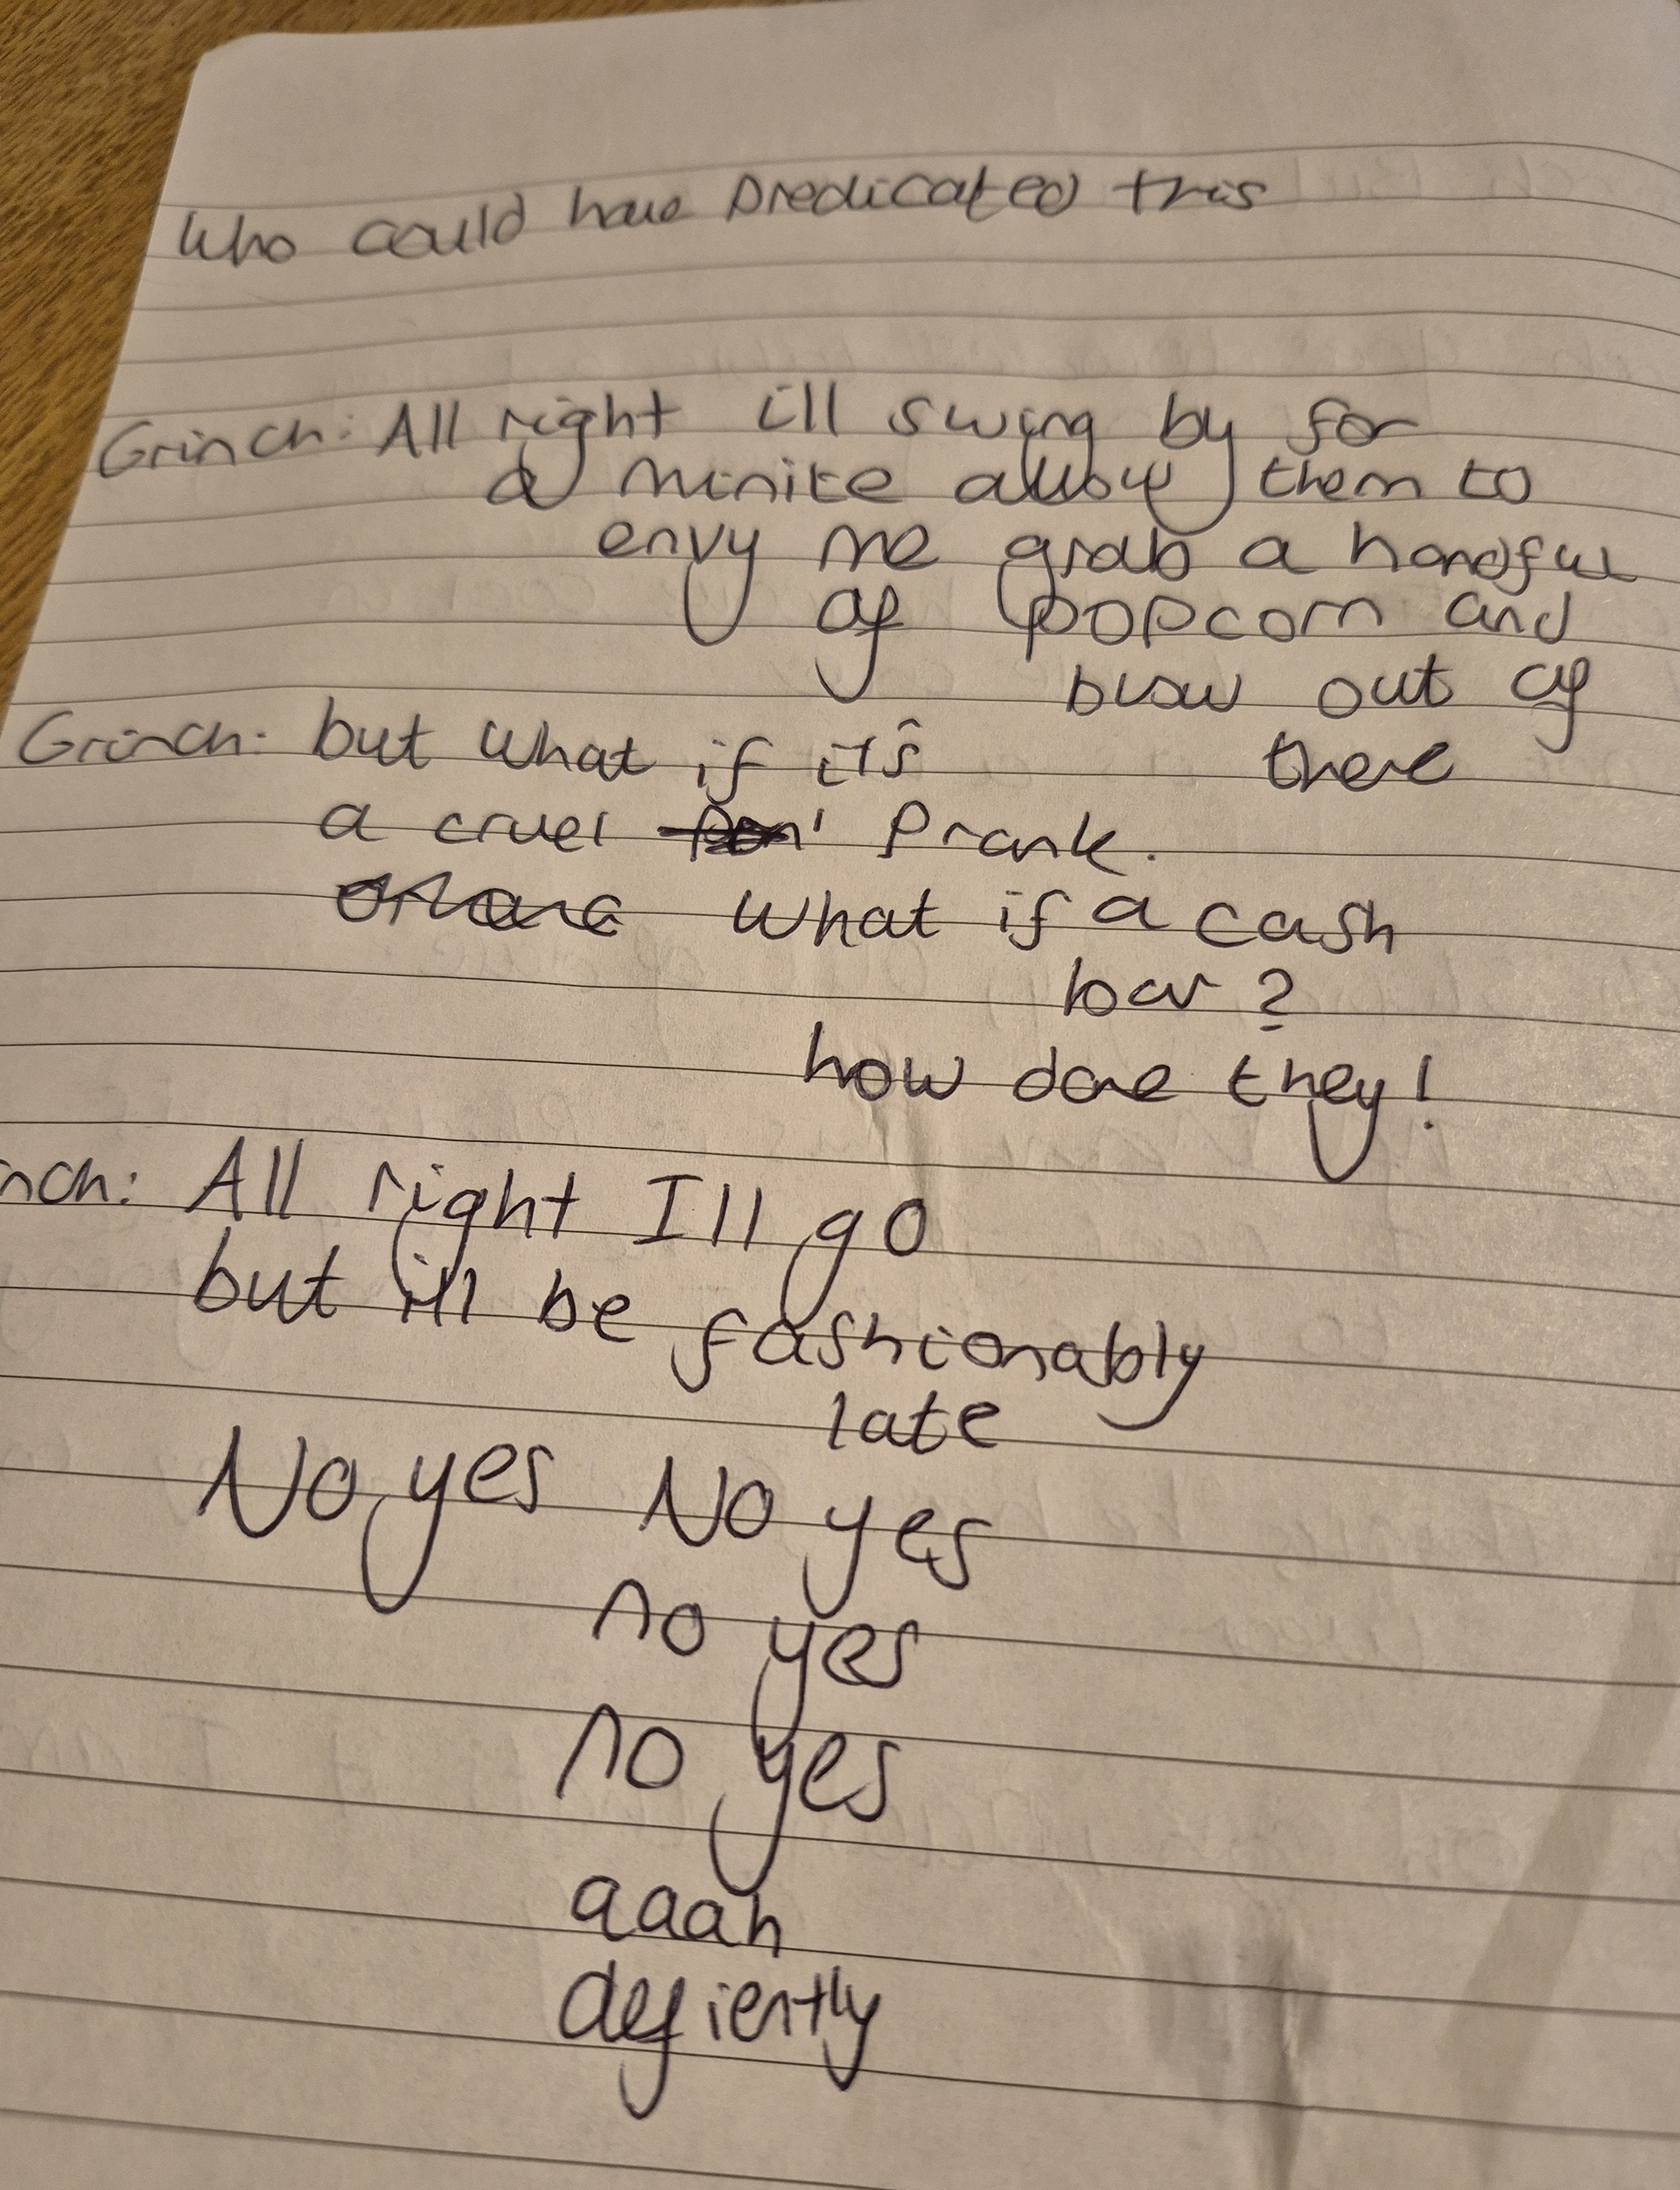 Who could have predicated this
Grinch: All right ill swing by for
a minite allow them to
envy me grab a handful
of popcorn and
blow out of
there
Grinch: but what if it's
a cruel Prank.
what if a cash
bar?
how dare they!
nch: All right I'll go
but ill be fashionably
late
No yes No yes
no yes
no yes
aaah
defiently